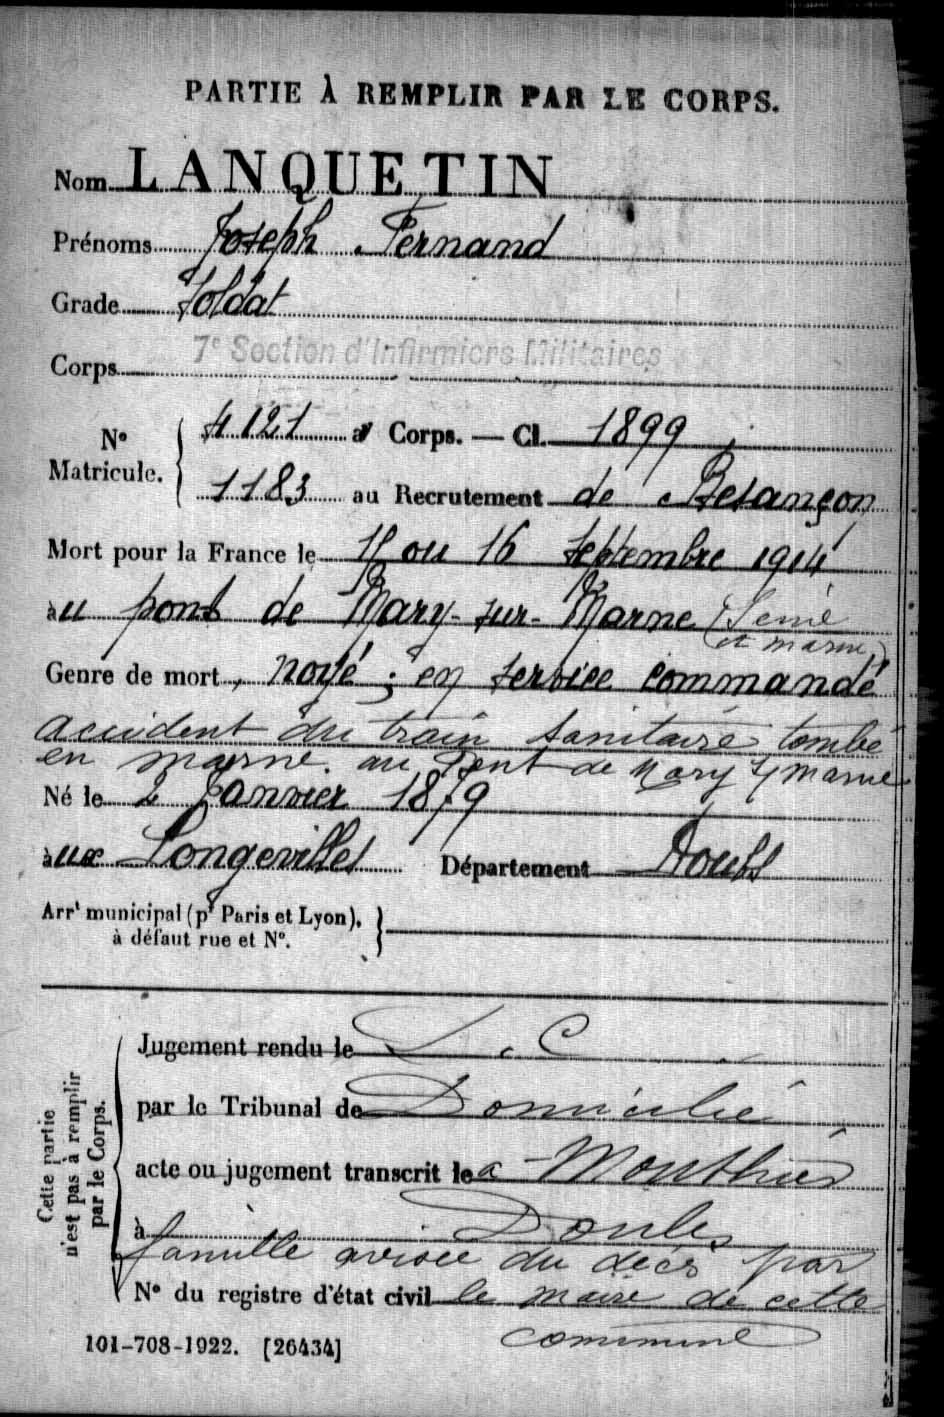 PARTIE À REMPLIR PAR LE CORPS.
Nom LANQUETIN
Prénoms Joseph Fernand
Grade Soldat
Corps 7e Section d'Infirmiers Militaires
No Matricule. { 4121 au Corps. — Cl. 1899
1183 au Recrutement de Besançon
Mort pour la France le 15 ou 16 septembre 1914
au pont de Mary-sur-Marne (Seine
et marne)
Genre de mort noyé ; en service commandé
accident du train sanitaire tombé
en marne. au Pont de Mary s/ marne
Né le 2 Janvier 1879
aux Longevilles Département Doubs
Arrt municipal (pr Paris et Lyon),
à défaut rue et No. }
Cette partie n'est pas à remplir par le Corps.
Jugement rendu le L. C
par le Tribunal de Domicilié
acte ou jugement transcrit le a Mouthier
à Doubs
famille avisée du décès par
No du registre d'état civil le maire de cette
commune
101-708-1922. [26434]